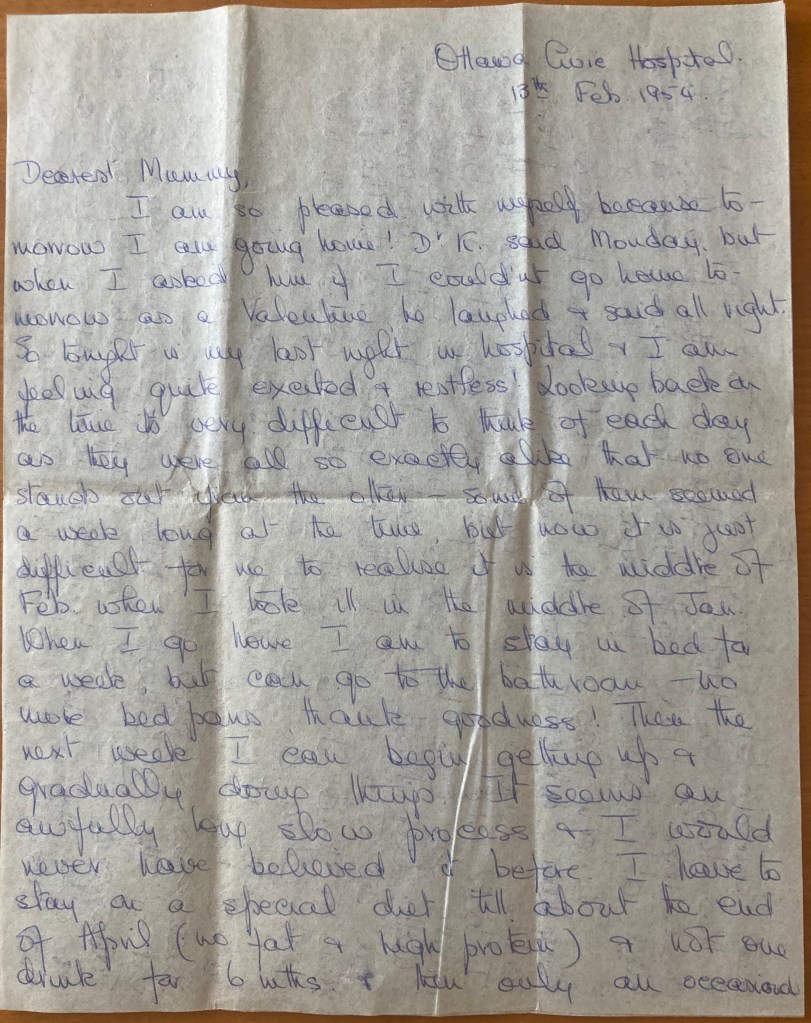 Ottawa Civic Hospital.
13th Feb. 1954.
Dearest Mummy,
I am so pleased with myself because to-
morrow I am going home! Dr K. said Monday, but
when I asked him if I could'nt go home to-
morrow as a Valentine he laughed & said all right.
So tonight is my last night in hospital & I am
feeling quite excited & restless! Looking back on
the time its very difficult to think of each day
as they were all so exactly alike that no one
stands out from the other – some of them seemed
a week long at the time, but now it is just
difficult for me to realise it is the middle of
Feb. when I took ill in the middle of Jan.
When I go home I am to stay in bed for
a week, but can go to the bathroom – no
more bed pans thank goodness! Then the
next week I can begin getting up &
gradually doing things. It seems an
awfully long slow process & I would
never have believed it before. I have to
stay on a special diet till about the end
of April (no fat & high protein) & not one
drink for 6 mths. & then only an occasional